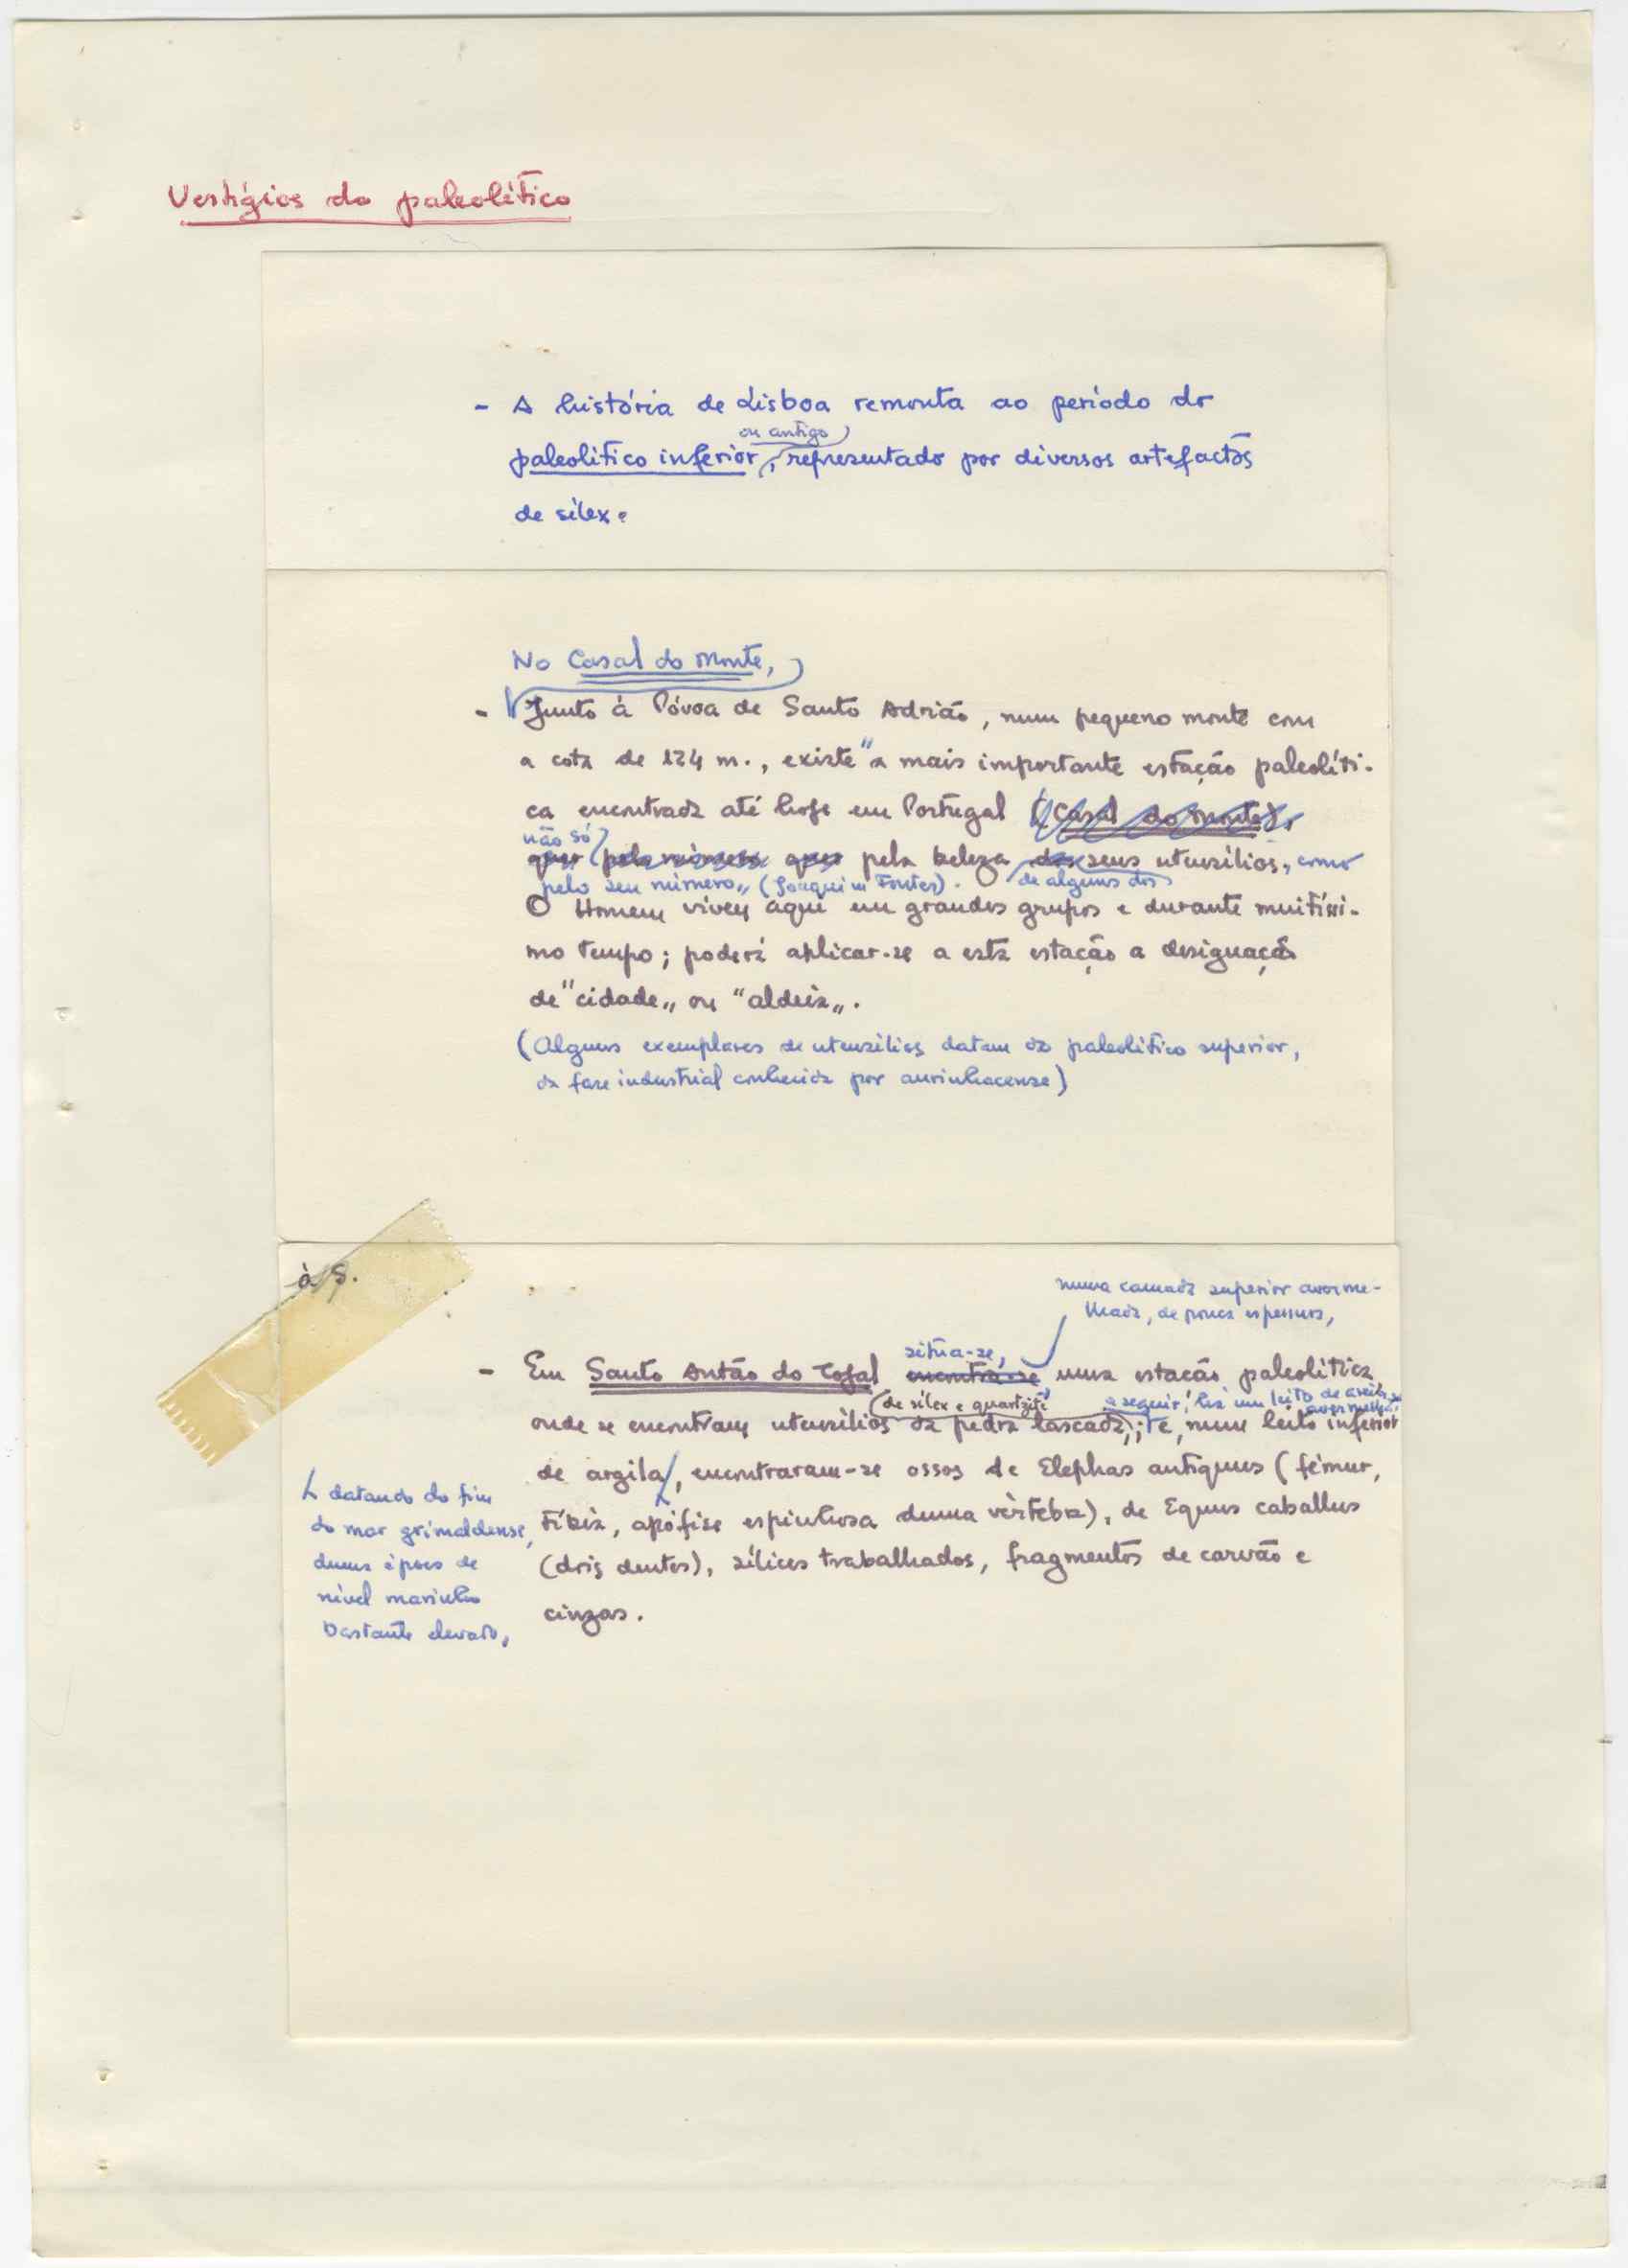 Vestígios do paleolítico
- A história de Lisboa remonta ao período do
ou antigo
paleolítico inferior, representado por diversos artefactos
de sílex.
No Casal do Monte,
- Junto à Póvoa de Santo Adrião, num pequeno monte com
a cota de 124 m., existe "a mais importante estação paleolíti-
ca encontrada até hoje em Portugal (Casal do Monte),
não só
quer pelo número quer pela beleza dos seus utensílios, como
pelo seu número„ (Joaquim Fontes). de alguns dos
O Homem viveu aqui em grandes grupos e durante muitíssi-
mo tempo; poderá aplicar-se a esta estação a designação
de "cidade„ ou "aldeia„.
(Alguns exemplares de utensílios datam do paleolítico superior,
da fase industrial conhecida por aurinhacense)
à g.
numa camada superior averme-
lhada, de pouca espessura,
situa-se,
- Em Santo Antão do Tojal encontra-se uma estação paleolítica
(de sílex e quartzite) a seguir, há um leito de areia
avermelhada
onde se encontram utensílios da pedra lascada; e, num leito inferior
de argila, encontraram-se ossos de Elephas antiquus (fémur,
tíbia, apófise espinhosa duma vértebra), de Equus caballus
(dois dentes), sílices trabalhados, fragmentos de carvão e
cinzas.
datando do fim
do mar grimaldense,
duma época de
nível marinho
bastante elevado,